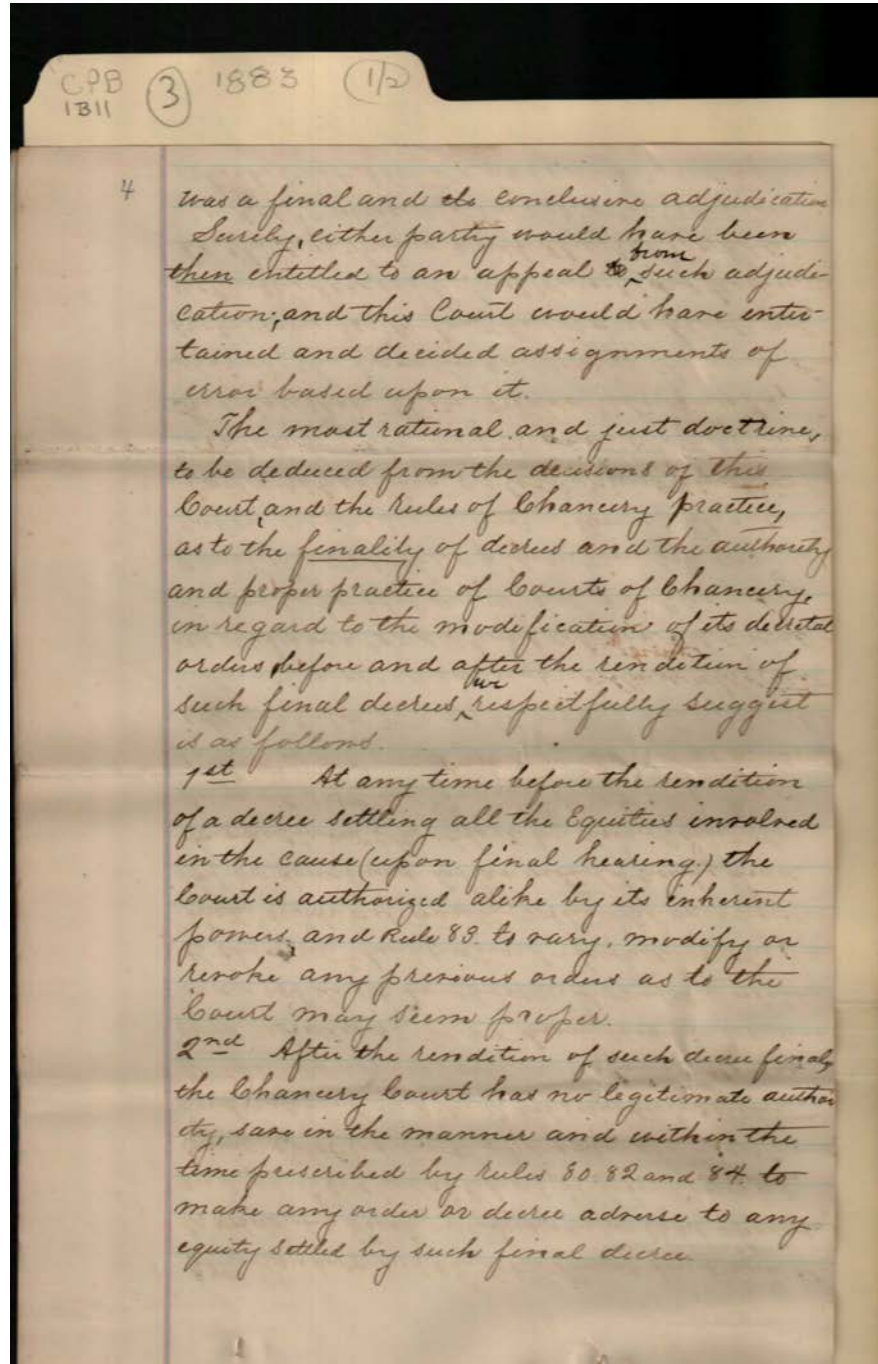 CPB
1B11
3
1883
1/2
4
was a final and its conclusive adjudication
Surely, either party would have been
then entitled to an appeal to from such adjudi-
cation; and this Court would have enter-
tained and decided assignments of
error based upon it.
The most rational and just doctrine,
to be deduced from the decisions of this
Court, and the rules of Chancery practice,
as to the finality of decrees and the authority
and proper practice of Courts of Chancery,
in regard to the modification of its decretal
orders, before and after the rendition of
such final decrees, we respectfully suggest
is as follows.
1st At any time before the rendition
of a decree settling all the Equities involved
in the cause (upon final hearing.) the
Court is authorized alike by its inherent
powers, and Rule 83. to vary, modify or
revoke any previous orders as to the
Court may seem proper.
2nd After the rendition of such decree final,
the Chancery Court has no legitimate author
ity, save in the manner and within the
time prescribed by rules 80. 82 and 84. to
make any order or decree adverse to any
equity settled by such final decree